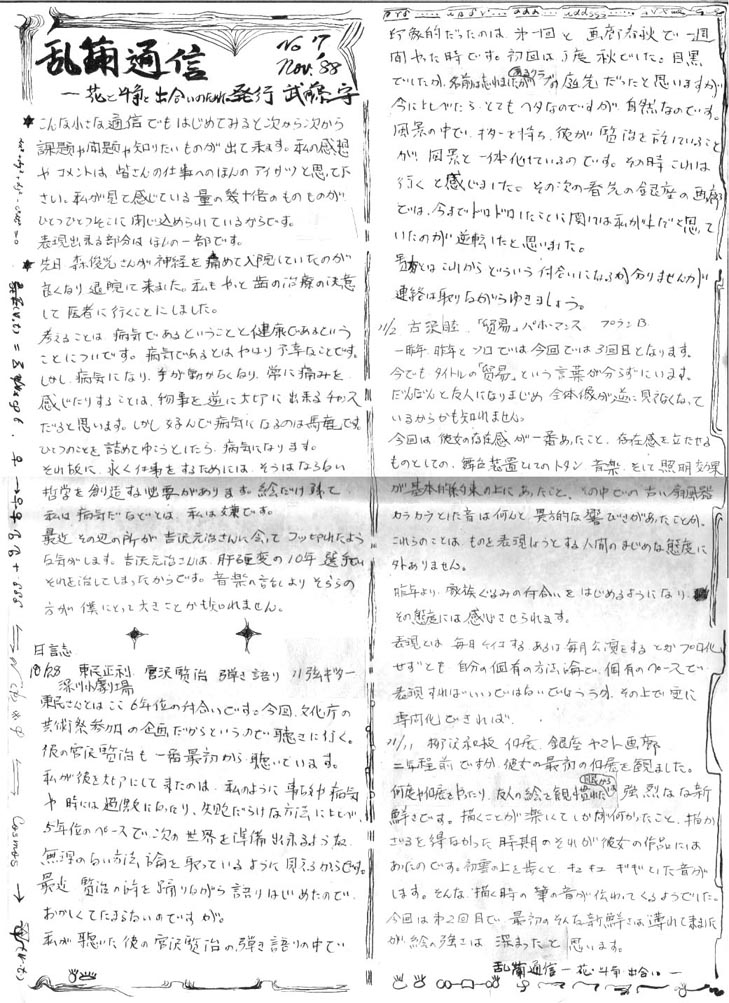 乱蘭通信
No 7
Nov. '88
発行 武藤 宇
★こんな小さな通信でもはじめてみると次から次から
課題や問題や知りたいものが出て来ます。私の感想
やコメントは、皆さんの仕事へのほんのアイサツと思って下
さい。私が見て感じている量の幾十倍のものものが、
ひとつひとつそこに閉じ込められているからです。
表現出来る部分はほんの一部です。
★先日、森俊光さんが神経を痛めて入院していたのが
良くなり退院して来ました。私もやっと歯の治療の決意
して医者に行くことにしました。
考えることは、病気であるということと健康であるという
ことについてです。病気であるとはやはり不幸なことです。
しかし、病気になり、手が動かなくなり、常に痛みを
感じたりすることは、物事を逆に大切に出来るチャンス
だろと思います。しかし好んで病気になるのは馬鹿です。
ひとつのことを詰めてゆこうとしたら、病気になります。
それ故に、永く仕事をするためには、そうはならない
哲学を創造する必要があります。絵だけ残して
私は病気だなどとは、私は嫌です。
最近その辺の所が吉沢元治さんに会ってフッ切れたよう
な気がします。吉沢元治さんは、肝硬変の10年選手で
それを治してしまったからです。音楽の話しよりそちらの
方が僕にとって大きことかも知れません。
日誌
10/28 東民正利 宮沢賢治 弾き語り 11弦ギター
深川小劇場
東民さんとはここ6年位の付合いです。今回、文化庁の
芸術祭参加の企画だからというので聴きに行く。
彼の宮沢賢治も一番最初から聴いています。
私が彼を大切にして来たのは、私のように事故や病気
や時には過激になったり、失敗だらけな方法によらず、
5年位のペースで次の世界を準備出来るような、
無理のない方法論を取っているように見えるからです。
最近賢治の詩を踊りながら語りはじめたので、
おかしくてたまらないのですが。
私が聴いた彼の宮沢賢治の弾き語りの中で
印象的だったのは、第一回と画廊春秋で一週
間やった時です。初回は丁度秋でした。目黒
でしたか、名前は忘れましたがの庭先だったと思いますが
今にしてみたら、とてもヘタなのですが、自然なのです。
風景の中で、ギターを持ち、彼が賢治を語っていること
が、風景と一体化しているのです。その時これは
行くと感じました。その次の春先の銀座の画廊
では、今までドロドロしたことに関しては私が上だと思って
いたのが逆転したと思いました。
とはこれからどういう付合いになるか分りませんが
連絡は取りながらゆきましょう。
11/2 古沢 「貿易」パホーマンス プランB
一昨年、昨年とソロでは今回では3回目となります。
今でもタイトルの「貿易」という言葉が分らずにいます。
だんだんと友人になりはじめ全体像が逆に見えなくなって
いるからかも知れません。
今回は彼女の存在感が一番あったこと、存在感を立たせる
ものとしての、舞台装置としてのトタン、音楽、そして照明効果
が基本的約束の上にあったこと、その中での古い扇風器
カラカラとした音は何んと異方的な響びきがあったことか、
これらのことはものを表現しようとする人間のまじめな態度に
外ありません。
昨年より、家族ぐるみの付合いをはじめるようになり、
その態度には感じさせられます。
表現とは毎日ケイコする、あるは毎月公演をするとかプロ化
せずとも自分の個有の方法論で、個有のペースで
表現すればいいのではないでしょうか、その上で更に
専門化できれば。
11/11 柳沢和枝個展 銀座ヤマト画廊
二年程前ですが、彼女の最初の個展を観ました。
何度や個展をやったり、友人の絵を観慣れた目からは強烈なな新
鮮さです。描くことが楽しくてしかたがなかったこと、描か
ざるを得なかった時期のそれが彼女の作品には
あったのです。初雪の上を歩くと、キュキュギギとした音が
します。そんな、描く時の筆の音が伝わってくるようでした。
今回は第2回目で、最初のそんな新鮮さは薄れて来ました
が、絵の強さは深まったと思います。
乱蘭通信
Cosmos